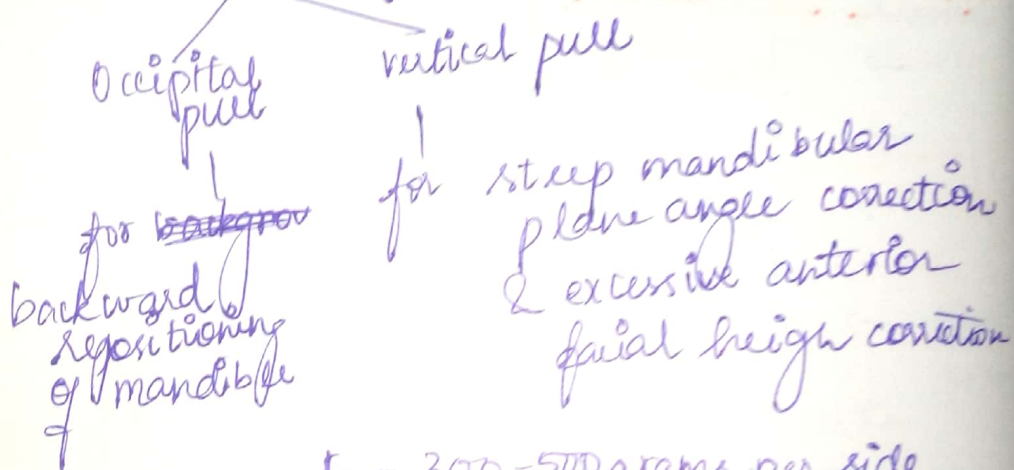 Occipital
pull
vertical pull
for
backward
repositioning
of mandible
for steep mandibular
plane angle correction
& excessive anterior
facial heigh correction
300-500 grams per side